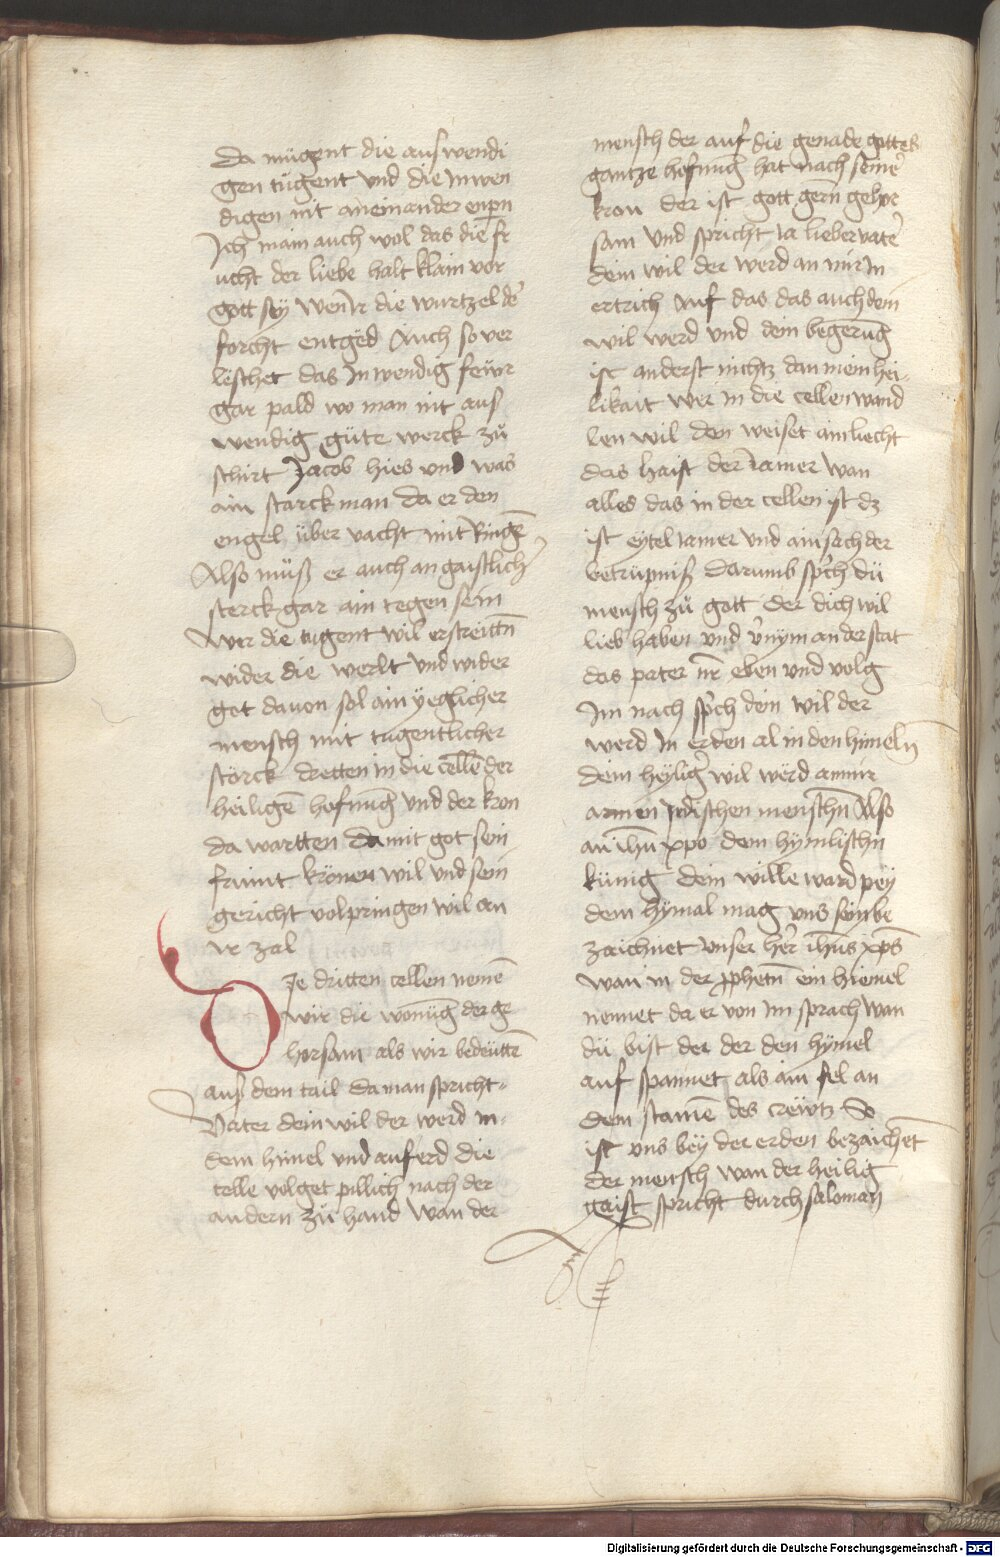 Da mügent die auswendi
gen tugent vnd die Inwen
digen nit aneinander enpern
Ich main auch wol das die fr
ucht der liebe halt klain vor
gott sey wen ir die wurtzel der
forcht entged Auch so ver
leschet das Inwendig fewr
gar pald wo man nit aus
wendig güte werck zů
schirt Jacob hies vnd was
ain starck man da er den
engel über vacht mit Ringen
Also můß er auch an gaistlicher
sterck gar ain regen sein
Wer die tugent wil erstreitten
wider die werlt vnd wider
got dauon sol ain yeglicher
mensch mit tugentlicher
störck dretten in die cellen der
heiligen hofnung vnd der kron
da wartten damit got sein
frünt krönen wil vnd sein
gericht volpringen wil an
ir zal
Die dritten cellen nemen
wir die wonung der ge
horsam als wir bedeutten
auß dem tail da man spricht
Vater dein wil der werd in
dem himel vnd auf erd die
celle volget pillich nach der
andern zů hand wan der
mensch der auf die genade gottes
gantze hofnung hat nach seiner
kron der ist gott gern gehor
sam vnd spricht ia lieber vater
dein wil der werd an mir In
ertrich auf das das auch dein
wil werd vnd dein begerung
ist anderst nichtz dan mein hei
likait wer in die cellen wand
len wil den weiset ain liecht
das haist der iamer wan
alles das in der cellen ist dz
ist eytel iamer vnd ain sach der
betrüpniß darumb sprich dü
mensch zů gott der dich wil
lieb haben vnd vernym an der stat
das pater nr eben vnd volg
Im nach sprich dein wil der
werd In erden al in den himeln
dein heylig wil werd an mir
armen irdischen menschn Also
an ihu xpo dem hymlischn
künig dein wille ward pey
dem hymal mag vns sein be
zaichnet vnser herr ihus xps
wan in der prophetn ein hiemel
nennet da er von im sprach wan
dü bist der der den hymel
auf spannet als ain fel an
dem stamen des crewtz So
ist vns bey der erden bezaichet
der mensch wan der heilig
gaist spricht durch saloman
Digitalisierung gefördert durch die Deutsche Forschungsgemeinschaft - DFG